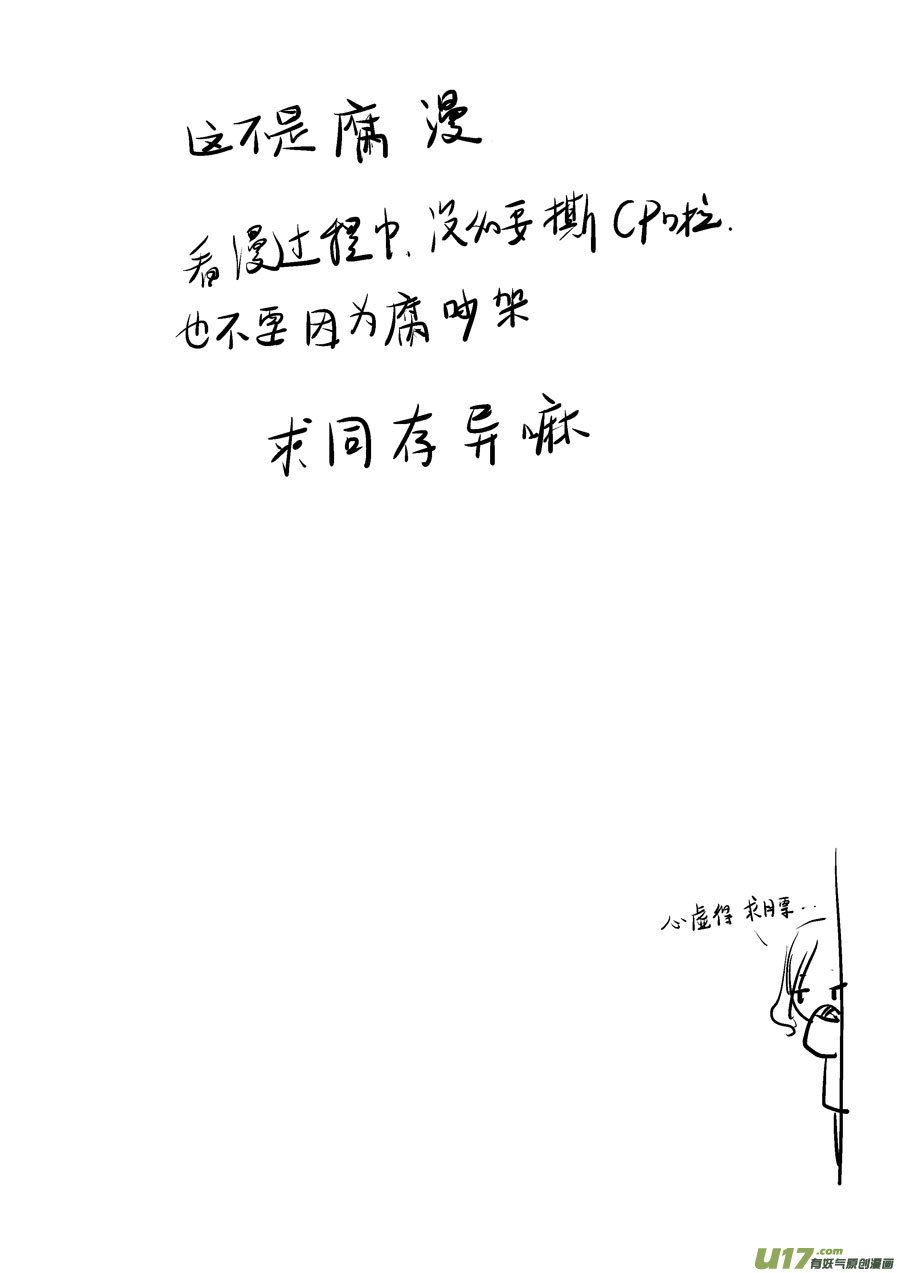 这不是腐漫
看漫过程中,没必要撕CP啦.
也不要因为腐吵架
求同存异嘛
心虚得求月票...
U17.com
有妖气原创漫画